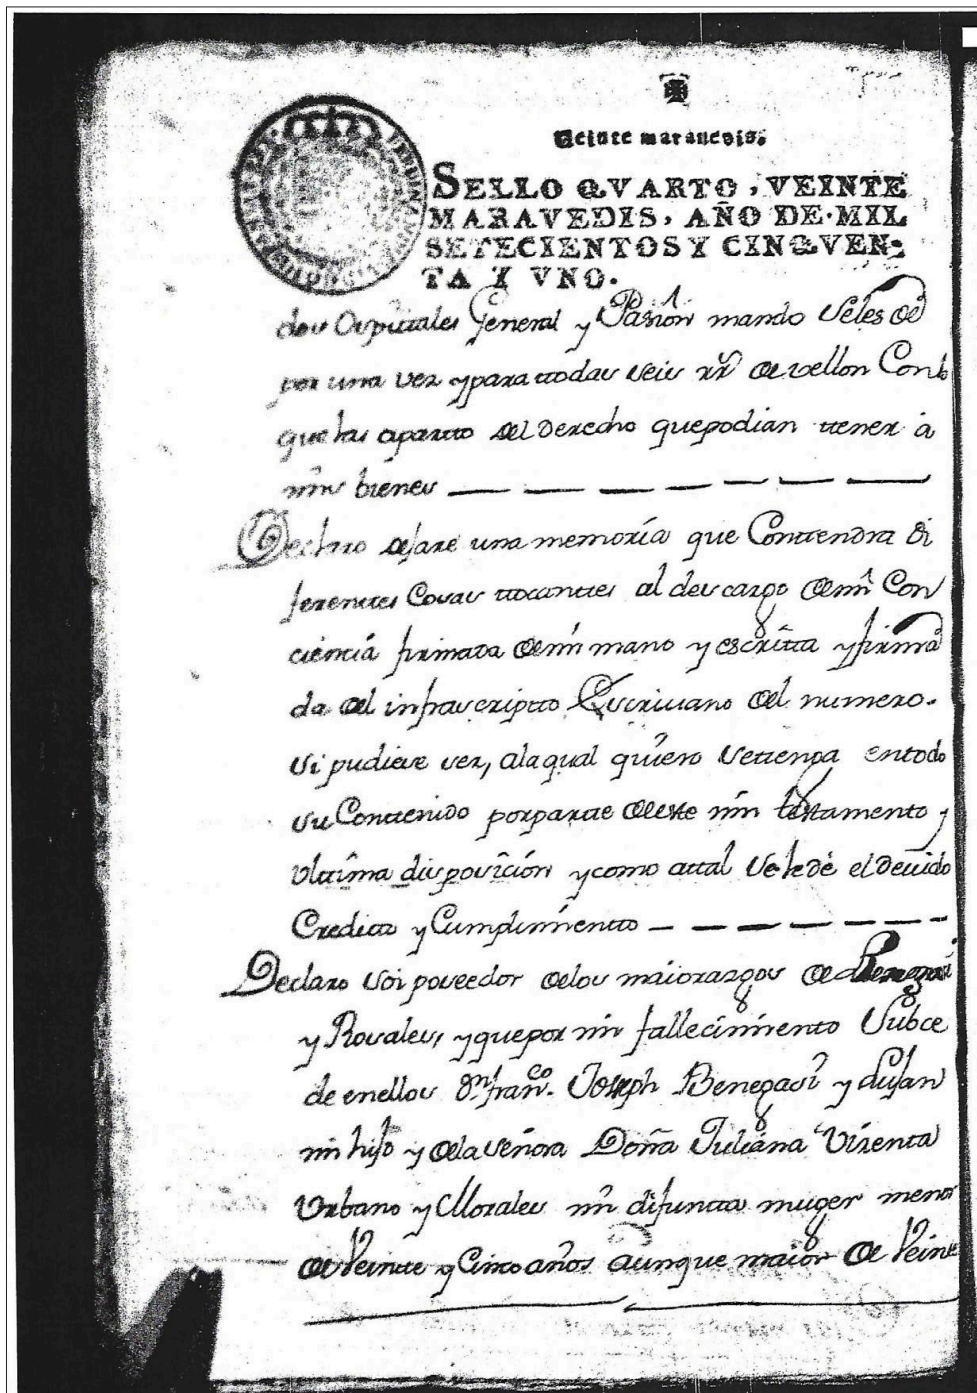 Veinte marauedis.
SELLO QVARTO, VEINTE
MARAVEDIS, AÑO DE MIL
SETECIENTOS Y CINQVEN-
TA Y VNO.
dos Ospitales General y Pasion mando se les dè
por una vez y para ttodas seis rs. de vellon Con lo
que les apartto del derecho que podian ttener à
mis bienes
Declaro dejare una memoria que Conttendra di
ferenttes Cosas ttocanttes al descargo de mi Con
ciencia firmada de mi mano y escritta y firma
da del infrascriptto Escriuano del numero.
si pudiere ser, a la qual quiero se ttenga en todo
su Conttenido por partte de este mi testamento y
ulttima disposicion y como attal se le dè el deuido
Creditto y Cumplimientto
Declaro soi poseedor de los maiorazgos de Benegasi
y Rosales, y que por mi fallecimiento Subce
de en ellos Dn. Franco. Joseph Benegasi y Lujan
mi hijo y de la señora Doña Juliana Vizenta
Urbano y Morales mi difuntta muger menor
de Veintte y Cinco años aunque maior de Veintte